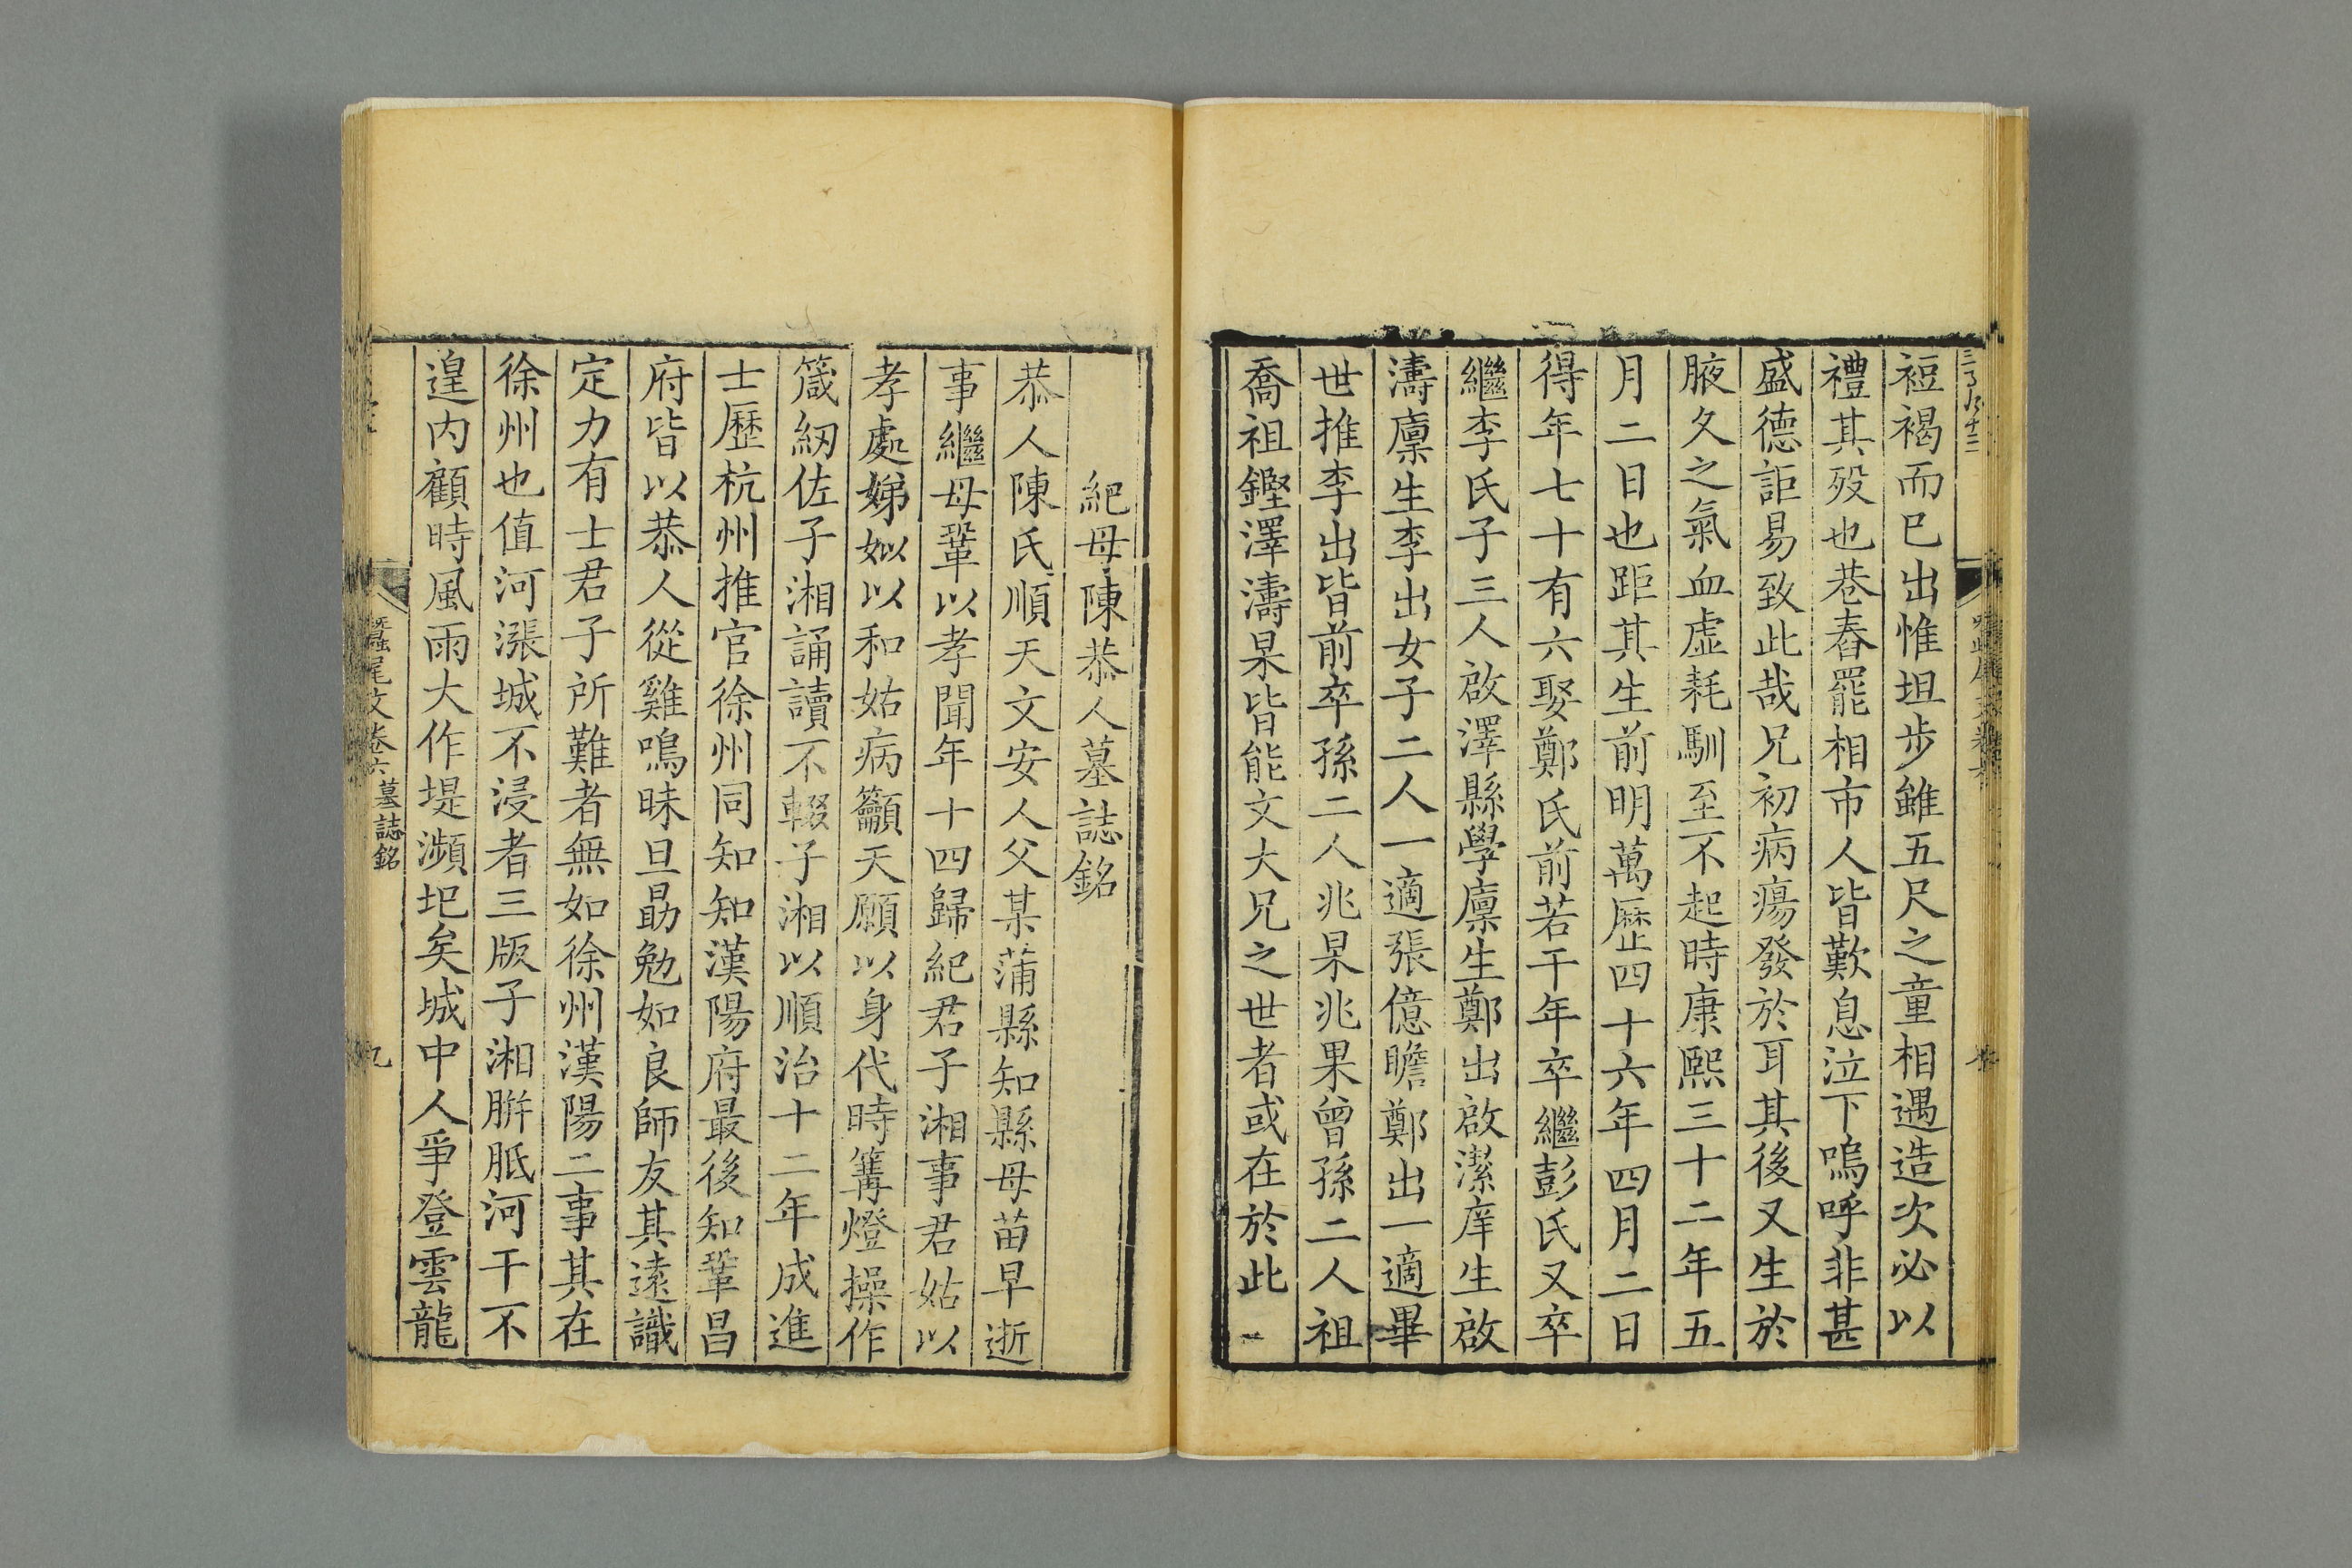 裋褐而已出惟坦步雖五尺之童相遇造次必以
禮其歿也巷舂罷相市人皆歎息泣下嗚呼非甚
盛德詎易致此哉兄初病瘍發於耳其後又生於
腋久之氣血虛耗馴至不起時康熙三十二年五
月二日也距其生前明萬歷四十六年四月二日
得年七十有六娶鄭氏前若干年卒繼彭氏又卒
繼李氏子三人啟澤縣學廩生鄭出啟潔庠生啟
濤廩生李出女子二人一適張億瞻鄭出一適畢
世推李出皆前卒孫二人兆杲兆果曾孫二人祖
喬祖鏗澤濤杲皆能文大兄之世者或在於此
紀母陳恭人墓誌銘
恭人陳氏順天文安人父某蒲縣知縣母苗早逝
事繼母鞏以孝聞年十四歸紀君子湘事君姑以
孝處娣姒以和姑病籲天願以身代時篝燈操作
箴紉佐子湘誦讀不輟子湘以順治十二年成進
士歷杭州推官徐州同知知漢陽府最後知鞏昌
府皆以恭人從雞鳴昧旦勗勉如良師友其遠識
定力有士君子所難者無如徐州漢陽二事其在
徐州也值河漲城不浸者三版子湘胼胝河干不
遑內顧時風雨大作堤瀕圯矣城中人爭登雲龍
蠶尾文卷六墓誌銘
九